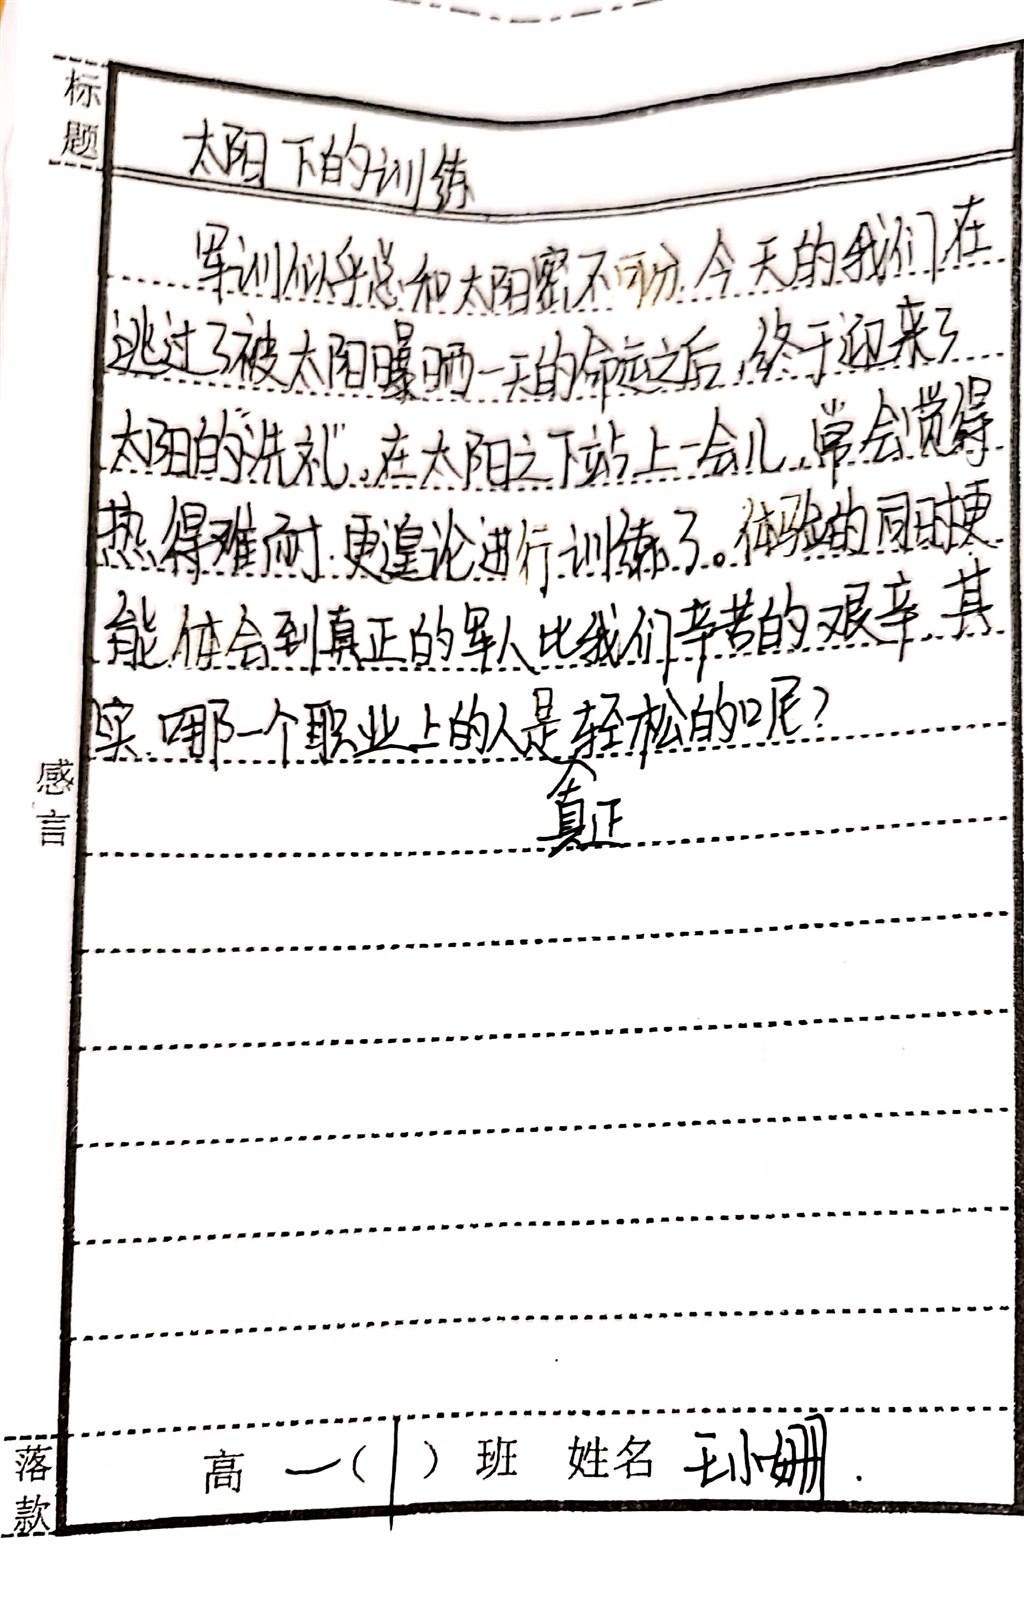 标题
太阳下的训练
军训似乎总和太阳密不可分.今天的我们在
逃过了被太阳曝晒一天的命运之后,终于迎来了
太阳的"洗礼"。在太阳之下站上一会儿,常会觉得
热得难耐.更遑论进行训练了。体验的同时更
能体会到真正的军人比我们辛苦的艰辛.其
实.哪一个职业上的人是轻松的呢?
真正
感言
落款
高一(1)班 姓名 王小姗.